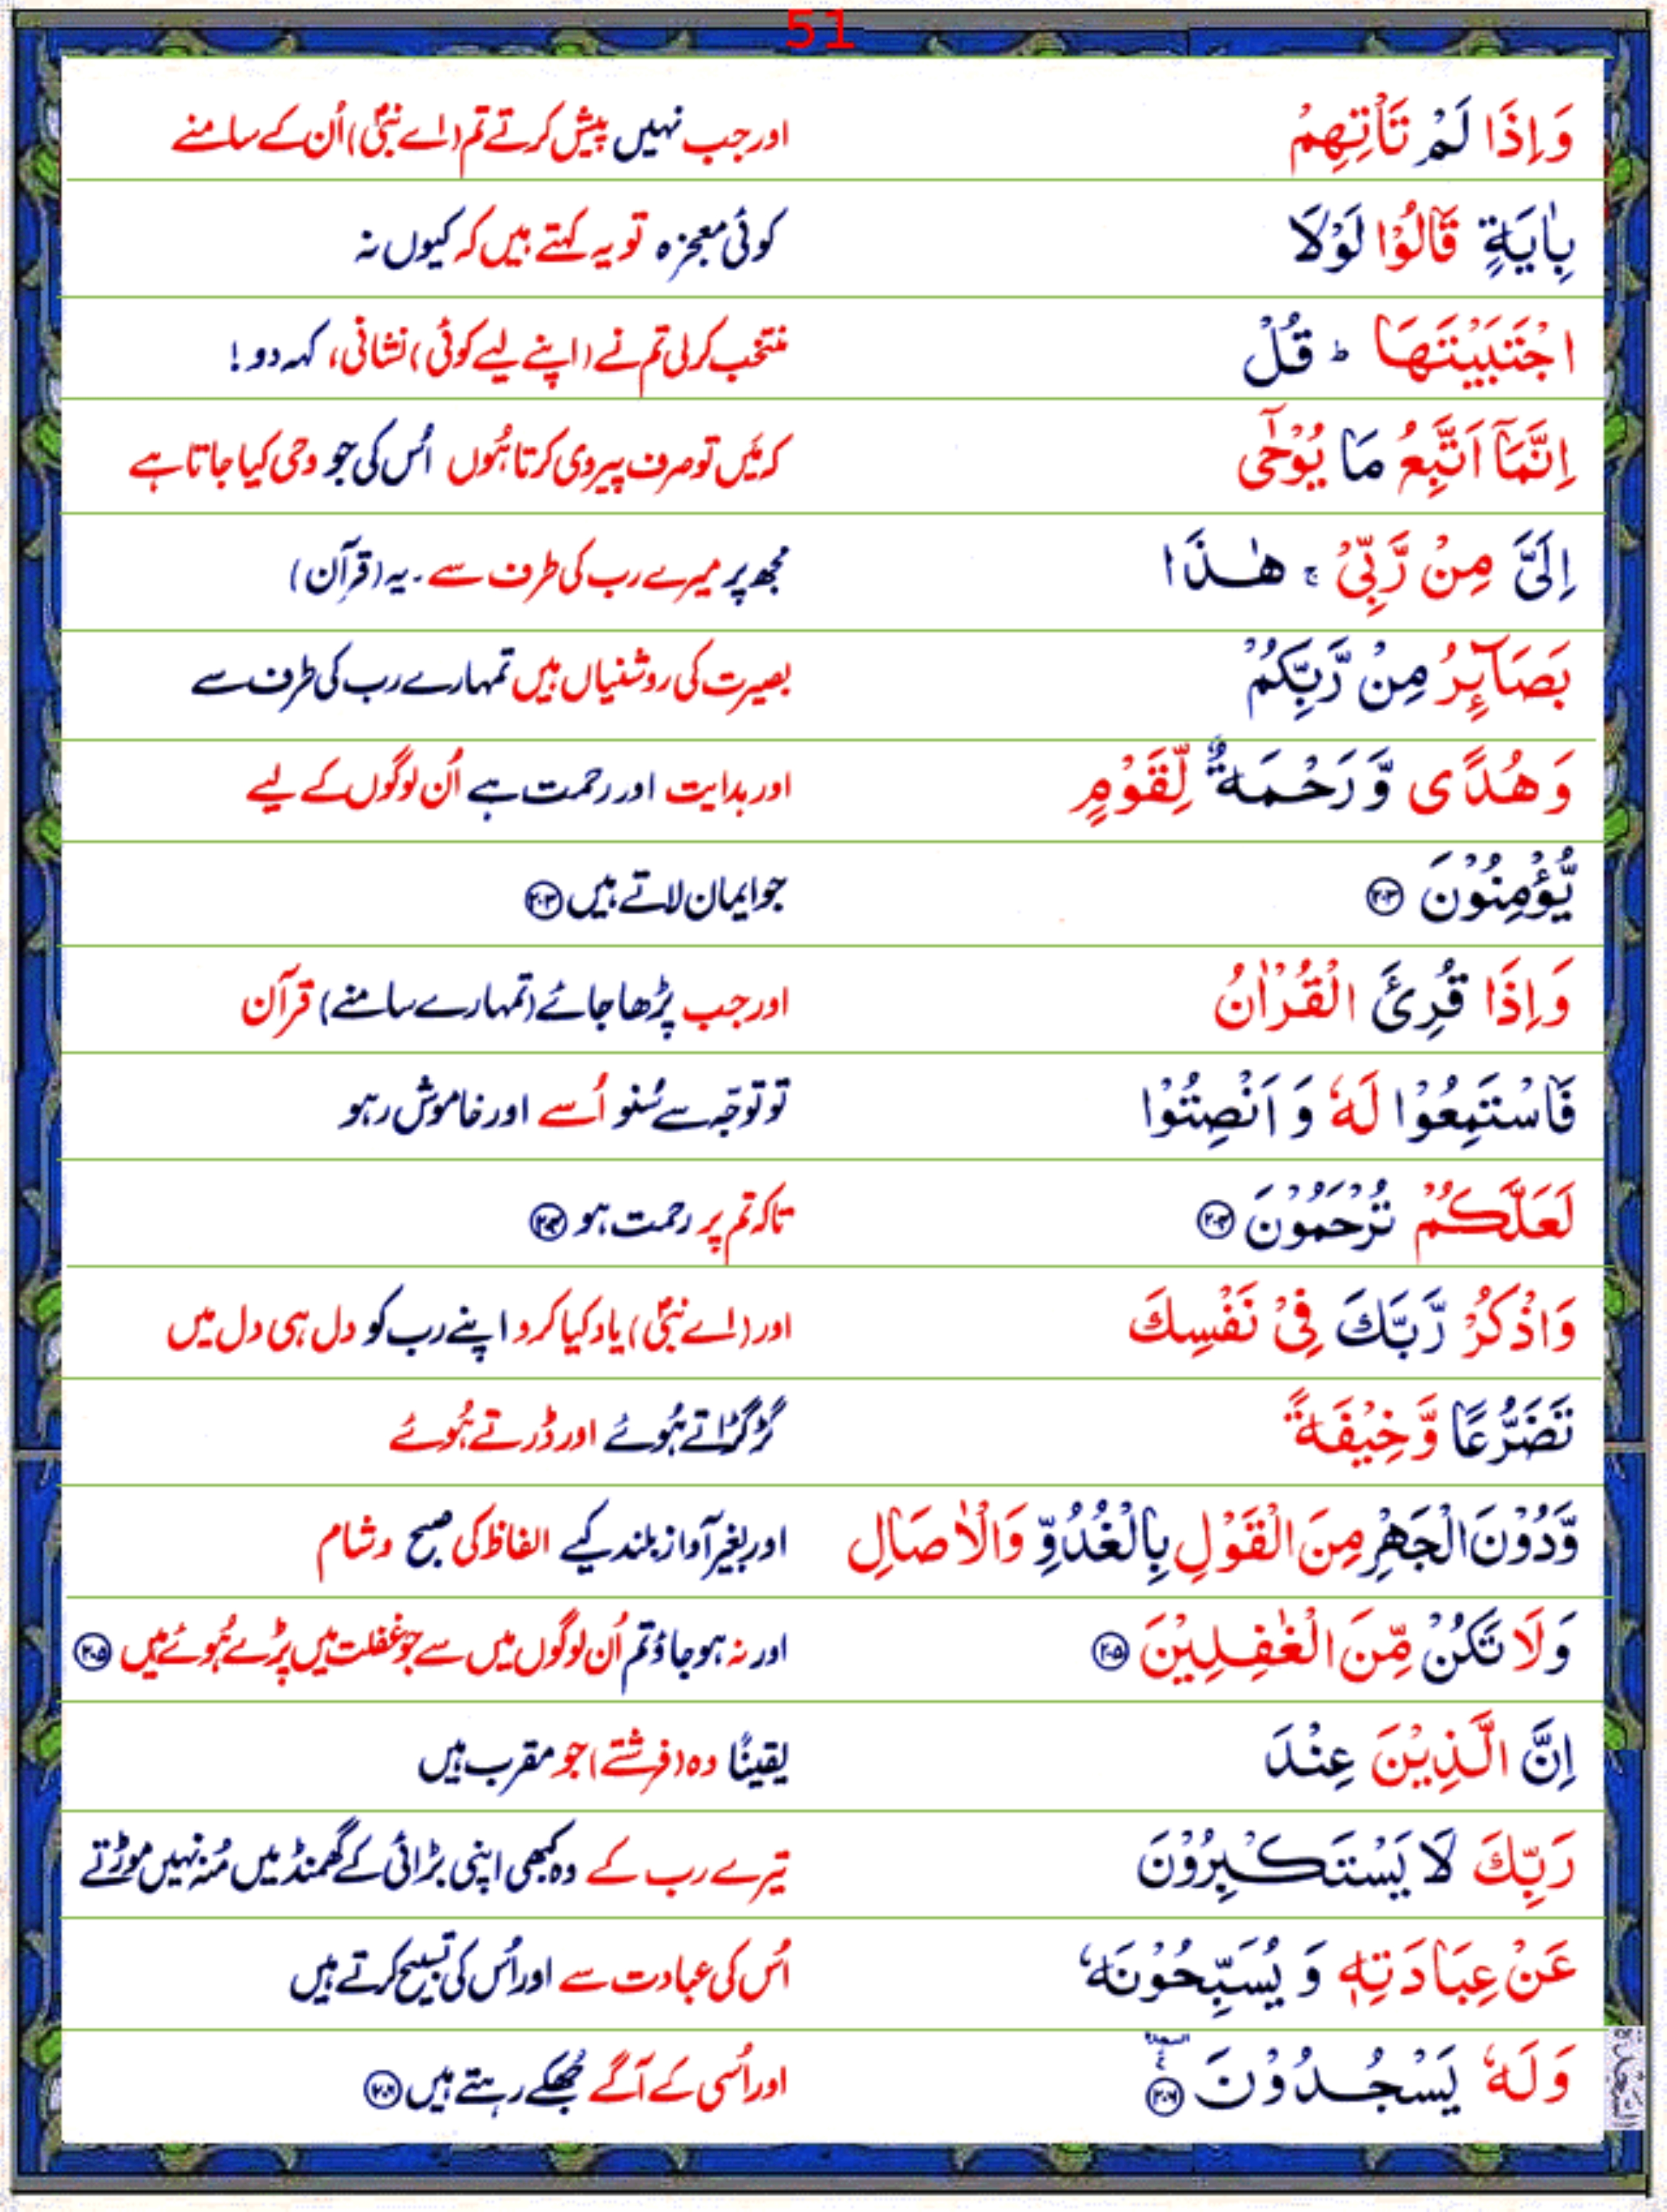 51
وَاِذَا لَمْ تَاْتِهِمْ اور جب نہیں پیش کرتے تم (اے نبیؐ) اُن کے سامنے
بِاٰيَةٍ قَالُوْا لَوْلَا کوئی معجزہ تو یہ کہتے ہیں کہ کیوں نہ
اجْتَبَيْتَهَا ؕ قُلْ منتخب کرلی تم نے (اپنے لیے کوئی) نشانی، کہہ دو!
اِنَّمَاۤ اَتَّبِعُ مَا يُوْحٰٓى کہ مَیں تو صرف پیروی کرتا ہُوں اُس کی جو وحی کیا جاتا ہے
اِلَىَّ مِنْ رَّبِّىْ ۚ هٰذَا مجھ پر میرے رب کی طرف سے ۔ یہ (قرآن)
بَصَآئِرُ مِنْ رَّبِّكُمْ بصیرت کی روشنیاں ہیں تمہارے رب کی طرف سے
وَهُدًى وَّرَحْمَةٌ لِّقَوْمٍ اور ہدایت اور رحمت ہے اُن لوگوں کے لیے
يُّؤْمِنُوْنَ ۲۰۳ جو ایمان لاتے ہیں ۲۰۳
وَاِذَا قُرِئَ الْقُرْاٰنُ اور جب پڑھا جائے (تمہارے سامنے) قرآن
فَاسْتَمِعُوْا لَهٗ وَ اَنْصِتُوْا تو توجّہ سے سُنو اُسے اور خاموش رہو
لَعَلَّكُمْ تُرْحَمُوْنَ ۲۰۴ تاکہ تم پر رحمت ہو ۲۰۴
وَاذْكُرْ رَّبَّكَ فِىْ نَفْسِكَ اور (اے نبیؐ) یاد کیا کرو اپنے رب کو دل ہی دل میں
تَضَرُّعًا وَّخِيْفَةً گڑگڑاتے ہُوئے اور ڈرتے ہُوئے
وَّدُوْنَ الْجَهْرِ مِنَ الْقَوْلِ بِالْغُدُوِّ وَالْاٰصَالِ اور بغیر آواز بلند کیے الفاظ کی صبح و شام
وَلَا تَكُنْ مِّنَ الْغٰفِلِيْنَ ۲۰۵ اور نہ ہو جاؤ تم اُن لوگوں میں سے جو غفلت میں پڑے ہُوئے ہیں ۲۰۵
اِنَّ الَّذِيْنَ عِنْدَ یقینًا وہ (فرشتے) جو مقرب ہیں
رَبِّكَ لَا يَسْتَكْبِرُوْنَ تیرے رب کے وہ کبھی اپنی بڑائی کے گھمنڈ میں مُنہ نہیں موڑتے
عَنْ عِبَادَتِهٖ وَ يُسَبِّحُوْنَهٗ اُس کی عبادت سے اور اُس کی تسبیح کرتے ہیں
وَلَهٗ يَسْجُدُوْنَ ۲۰۶ اور اُسی کے آگے جُھکے رہتے ہیں ۲۰۶